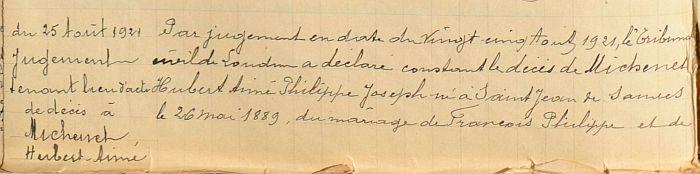 du 25 Août 1921
Jugement
tenant lieu d'acte
de décès à
Michenet,
Hubert Aimé
Par jugement en date du Vingt cinq Août 1921, le Tribunal
civil de Loudun a déclaré constant le décès de Michenet
Hubert Aimé Philippe Joseph né à Saint Jean de Sauves
le 26 mai 1889, du mariage de François Philippe et de